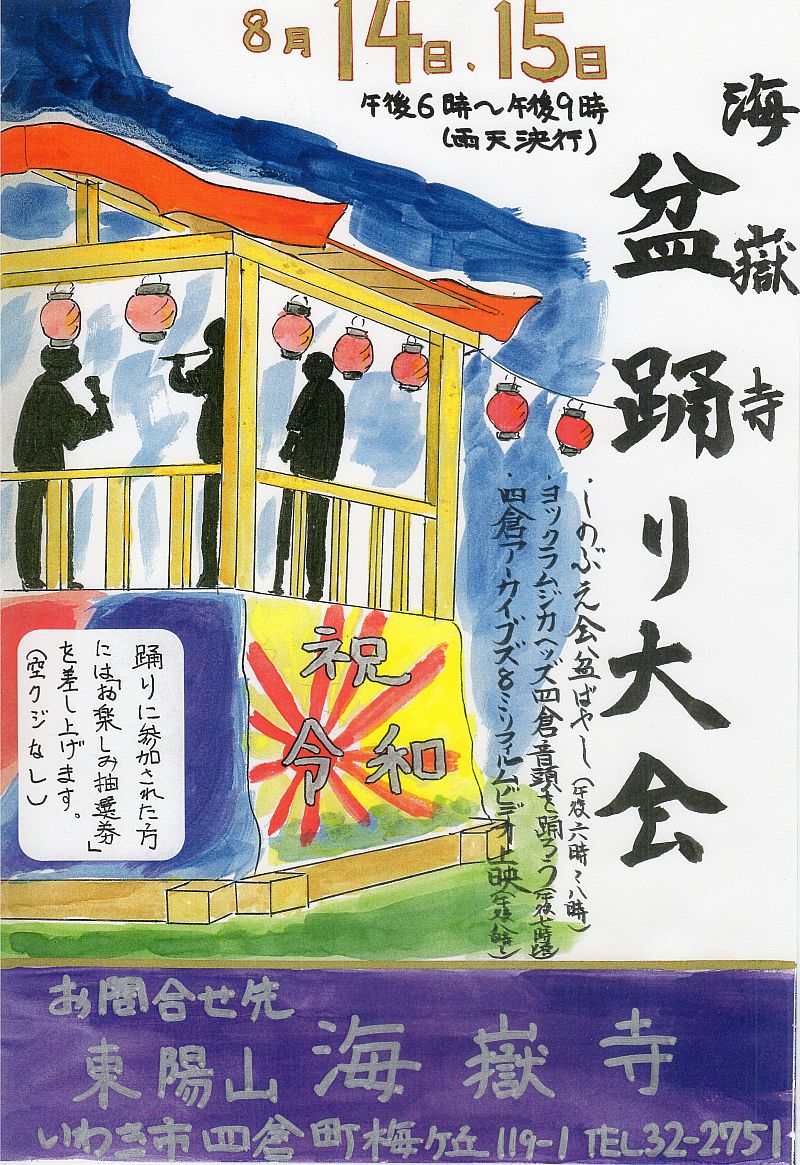 8月14日、15日
午後6時～午後9時
(雨天決行)
海嶽寺
盆踊り大会
・しのぶえ会盆ばやし(午後六時～八時)
・ヨックラムジカヘッズ四倉音頭を踊ろう(午後七時頃)
・四倉アーカイブズ8ミリフィルムビデオ上映(午後八時～)
祝
令和
踊りに参加された方
には「お楽しみ抽選券」
を差し上げます。
(空クジなし)
お問合せ先
東陽山 海嶽寺
いわき市四倉町梅ケ丘119-1 TEL32-2751